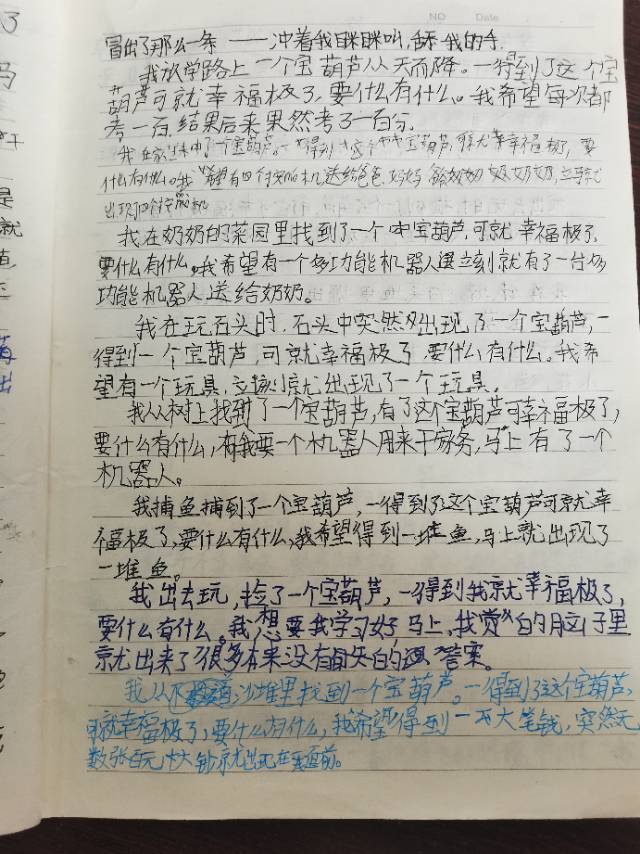 NO Date
冒出了那么一条——冲着我眯眯叫,舔我的手.
我放学路上一个宝葫芦从天而降。一得到了这个宝
葫芦可就幸福极了,要什么有什么。我希望每次都
考一百,结果后来果然考了一百分。
我在家里 中了一个宝葫芦。一得到 这个 宝葫芦,就幸福极了,要
什么有什么。我希望有四个 机送给爸爸 妈妈 爷爷 奶奶,立刻就
出现四个 机
我在奶奶的菜园里找到了一个宝葫芦,可就幸福极了,
要什么有什么。我希望有一个多功能机器人 立刻就有了一台多
功能机器人送给奶奶。
我在玩石头时,石头中突然出现了一个宝葫芦,一
得到一个宝葫芦,可就幸福极了,要什么有什么。我希
望有一个玩具,立刻就出现了一个玩具。
我从树上找到了一个宝葫芦,有了这个宝葫芦可幸福极了,
要什么有什么,我要一个机器人用来干家务,马上有了一个
机器人。
我捕鱼捕到了一个宝葫芦,一得到了这个宝葫芦可就幸
福极了,要什么有什么,我希望得到一堆鱼,马上就出现了
一堆鱼。
我出去玩,捡了一个宝葫芦,一得到我就幸福极了,
要什么有什么。我想要我学习好,马上,我 的脑子里
就出来了很多本来没有 的 答案。
我从 沙堆里找到一个宝葫芦。一得到了这个宝葫芦,
可就幸福极了,要什么有什么,我希望得到一 大笔钱,突然无
数张百元大钞就出现在 面前。